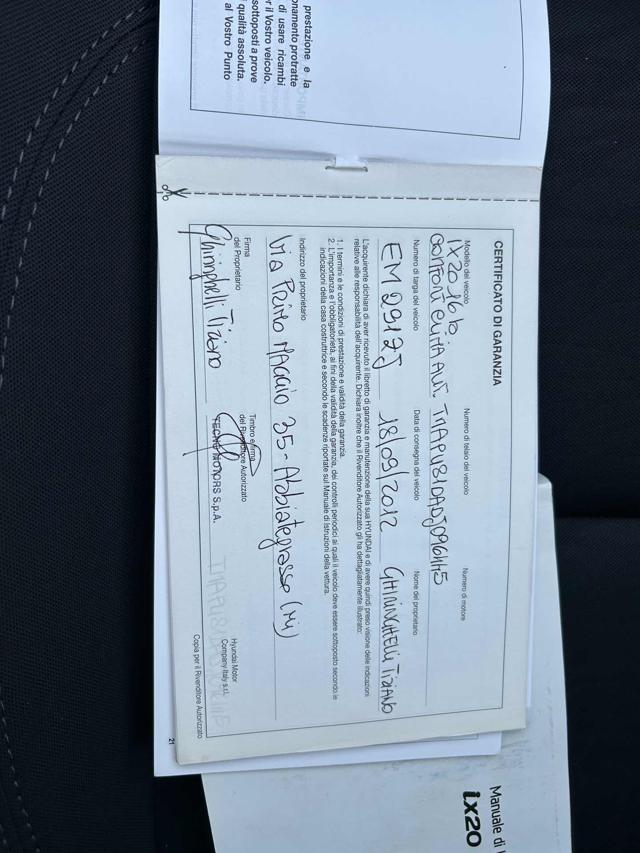 prestazione e la
onamento protratte
di usare ricambi
r il Vostro veicolo.
sottoposti a prove
qualità assoluta.
al Vostro Punto
CERTIFICATO DI GARANZIA
Modello del veicolo
Numero di telaio del veicolo
Numero di motore
IX20 16 b
COMFORT CLIMA AUT.
Numero di targa del veicolo
Data di consegna del veicolo
Nome del proprietario
EM 291ZJ 18/09/2012 GHININGHELLI TIZIANO
L'acquirente dichiara di aver ricevuto il libretto di garanzia e manutenzione della sua HYUNDAI e di avere quindi preso visione delle indicazioni
relative alle responsabilità dell'acquirente. Dichiara inoltre che il Rivenditore Autorizzato gli ha dettagliatamente illustrato:
1. I termini e le condizioni di prestazione e validità della garanzia
2. L'importanza e l'obbligatorietà, ai fini della validità della garanzia, dei controlli periodici ai quali il veicolo deve essere sottoposto secondo le
indicazioni della casa costruttrice e secondo le scadenze riportate sul Manuale di Istruzioni della vettura.
Indirizzo del proprietario
Via Primo Maggio 35 - Abbiategrasso (Mi)
Firma
del Proprietario
Timbro e firma
del Rivenditore Autorizzato
Hyundai Motor
Company Italy s.r.l.
Ghiringhelli Tiziano
TECNO MOTORS S.p.A.
Copia per il Rivenditore Autorizzato
21
Manuale di
ix20